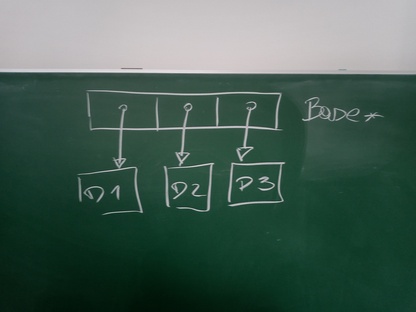 Base*
D1 D2 D3